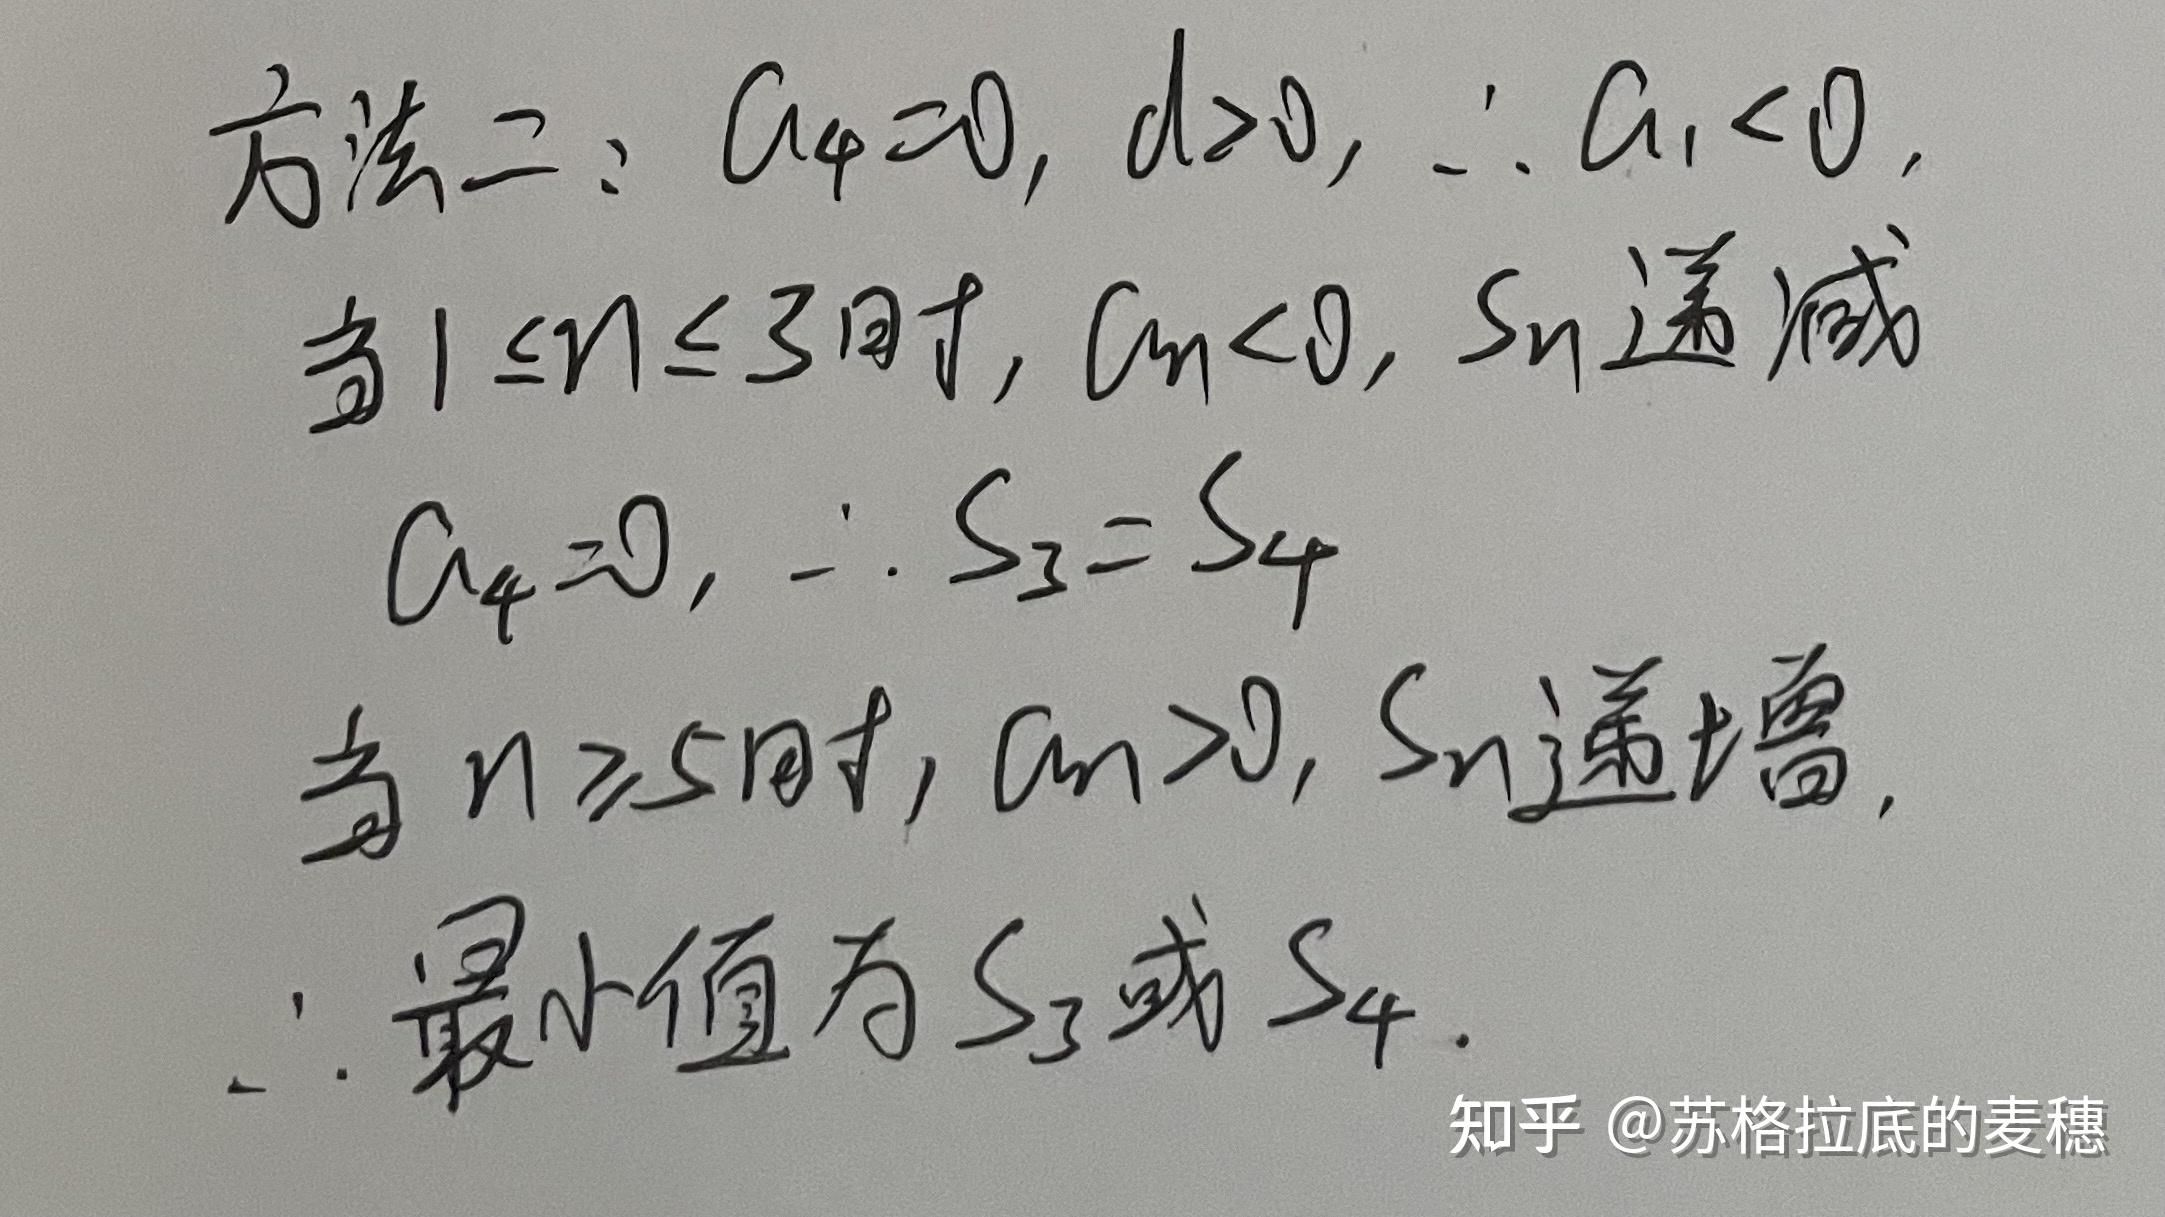 方法二：a₄=0, d>0, ∴ a₁<0,
当1≤n≤3时, aₙ<0, Sₙ递减
a₄=0, ∴ S₃=S₄
当n≥5时, aₙ>0, Sₙ递增,
∴ 最小值为S₃或S₄.
知乎 @苏格拉底的麦穗